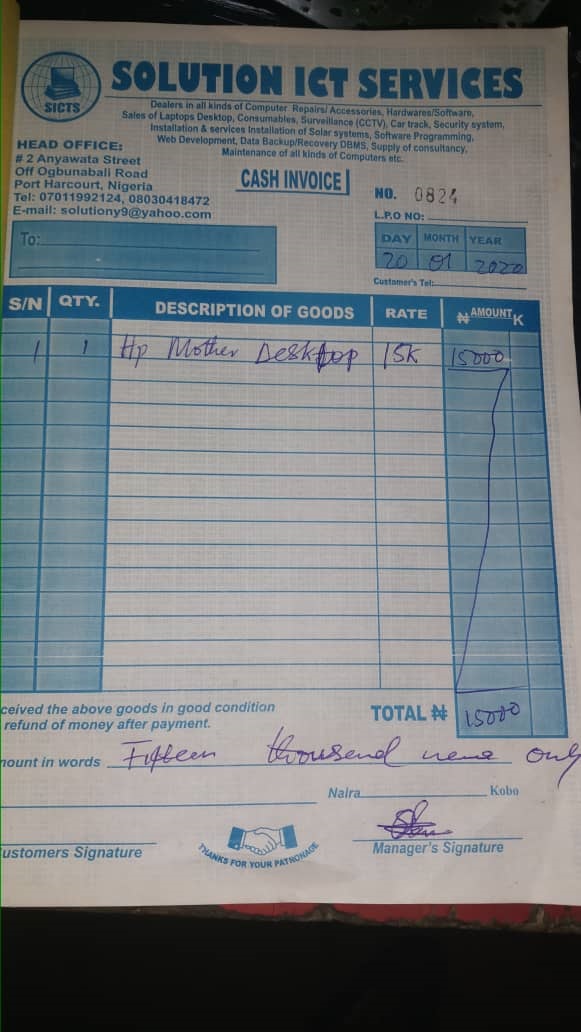 SICTS
SOLUTION ICT SERVICES
Dealers in all kinds of Computer Repairs/ Accessories, Hardwares/Software,
Sales of Laptops Desktop, Consumables, Surveillance (CCTV), Car track, Security system,
Installation & services Installation of Solar systems, Software Programming,
Web Development, Data Backup/Recovery DBMS, Supply of consultancy,
Maintenance of all kinds of Computers etc.
HEAD OFFICE:
# 2 Anyawata Street
Off Ogbunabali Road
Port Harcourt, Nigeria
Tel: 07011992124, 08030418472
E-mail: solutiony9@yahoo.com
CASH INVOICE
NO. 0824
L.P.O NO:
To:
DAY MONTH YEAR
20 01 2020
Customer's Tel:
S/N QTY. DESCRIPTION OF GOODS RATE ₦ AMOUNT K
1 1 Hp Mother Desktop 15K 15000
ceived the above goods in good condition
refund of money after payment.
TOTAL ₦ 15000
mount in words Fifteen thousend only
Naira Kobo
ustomers Signature
THANKS FOR YOUR PATRONAGE
Manager's Signature